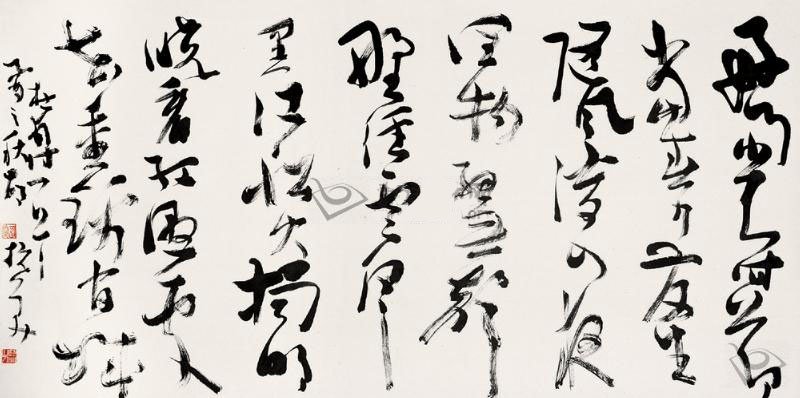 好雨知時節
當春乃發生
隨風潛入夜
潤物細無聲
野徑雲俱
黑江船火獨明
曉看紅濕處
花重錦官城
杜甫詩一首
之秋